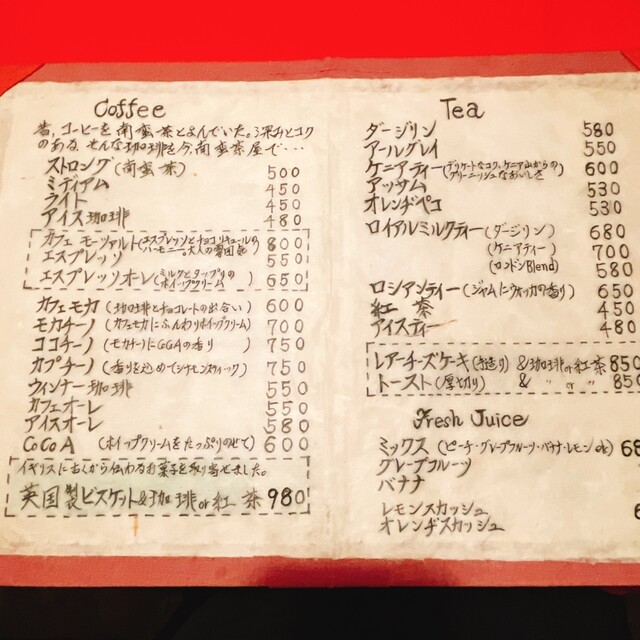 Coffee
昔、コーヒーを南蛮茶とよんでいた。深みとコク
のある、そんな珈琲を今、南蛮茶屋で・・・
ストロング(南蛮茶) 500
ミディアム 450
ライト 450
アイス珈琲 480
カフェ モーツァルト(エスプレッソとチョコリキュールの
ハーモニー。大人の雰囲気) 800
エスプレッソ 550
エスプレッソオーレ(ミルクとタップリの
ホイップクリーム) 650
カフェモカ (珈琲とチョコレートの出合い) 600
モカチーノ (カフェモカにふんわりホイップクリーム) 700
ココチーノ (モカチーノにGGAの香り) 750
カプチーノ (香りを込めてシナモンスティック) 750
ウィンナー珈琲 550
カフェオーレ 550
アイスオーレ 580
COCOA (ホイップクリームをたっぷりのせて) 600
イギリスに古くから伝わるお菓子を取り寄せました。
英国製ビスケット&珈琲or紅茶 980
Tea
ダージリン 580
アールグレイ 550
ケニアティー(デリケートなコク。ケニア山からの
グリーニッシュなおいしさ) 600
アッサム 530
オレンヂペコ 530
ロイアルミルクティー(ダージリン) 680
(ケニアティー) 700
(ロンドンBlend) 580
ロシアンティー(ジャムにウォッカの香り) 650
紅茶 450
アイスティー 480
レアーチーズケーキ(手造り) &珈琲or紅茶 850
トースト(厚切り) & 〃 or 〃 850
Fresh Juice
ミックス (ピーチ・グレープフルーツ・バナナ・レモン etc) 68
グレープフルーツ
バナナ
レモンスカッシュ 6
オレンヂスカッシュ